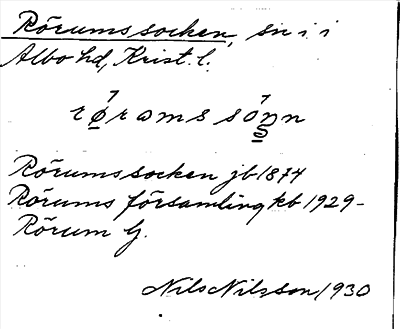 Rörums socken, sn i i
Albo hd, Krist. l.
røramssónn
Rörumssocken jb 1874
Rörums församling kb 1929-
Rörum G.
Nils Nilsson 1930